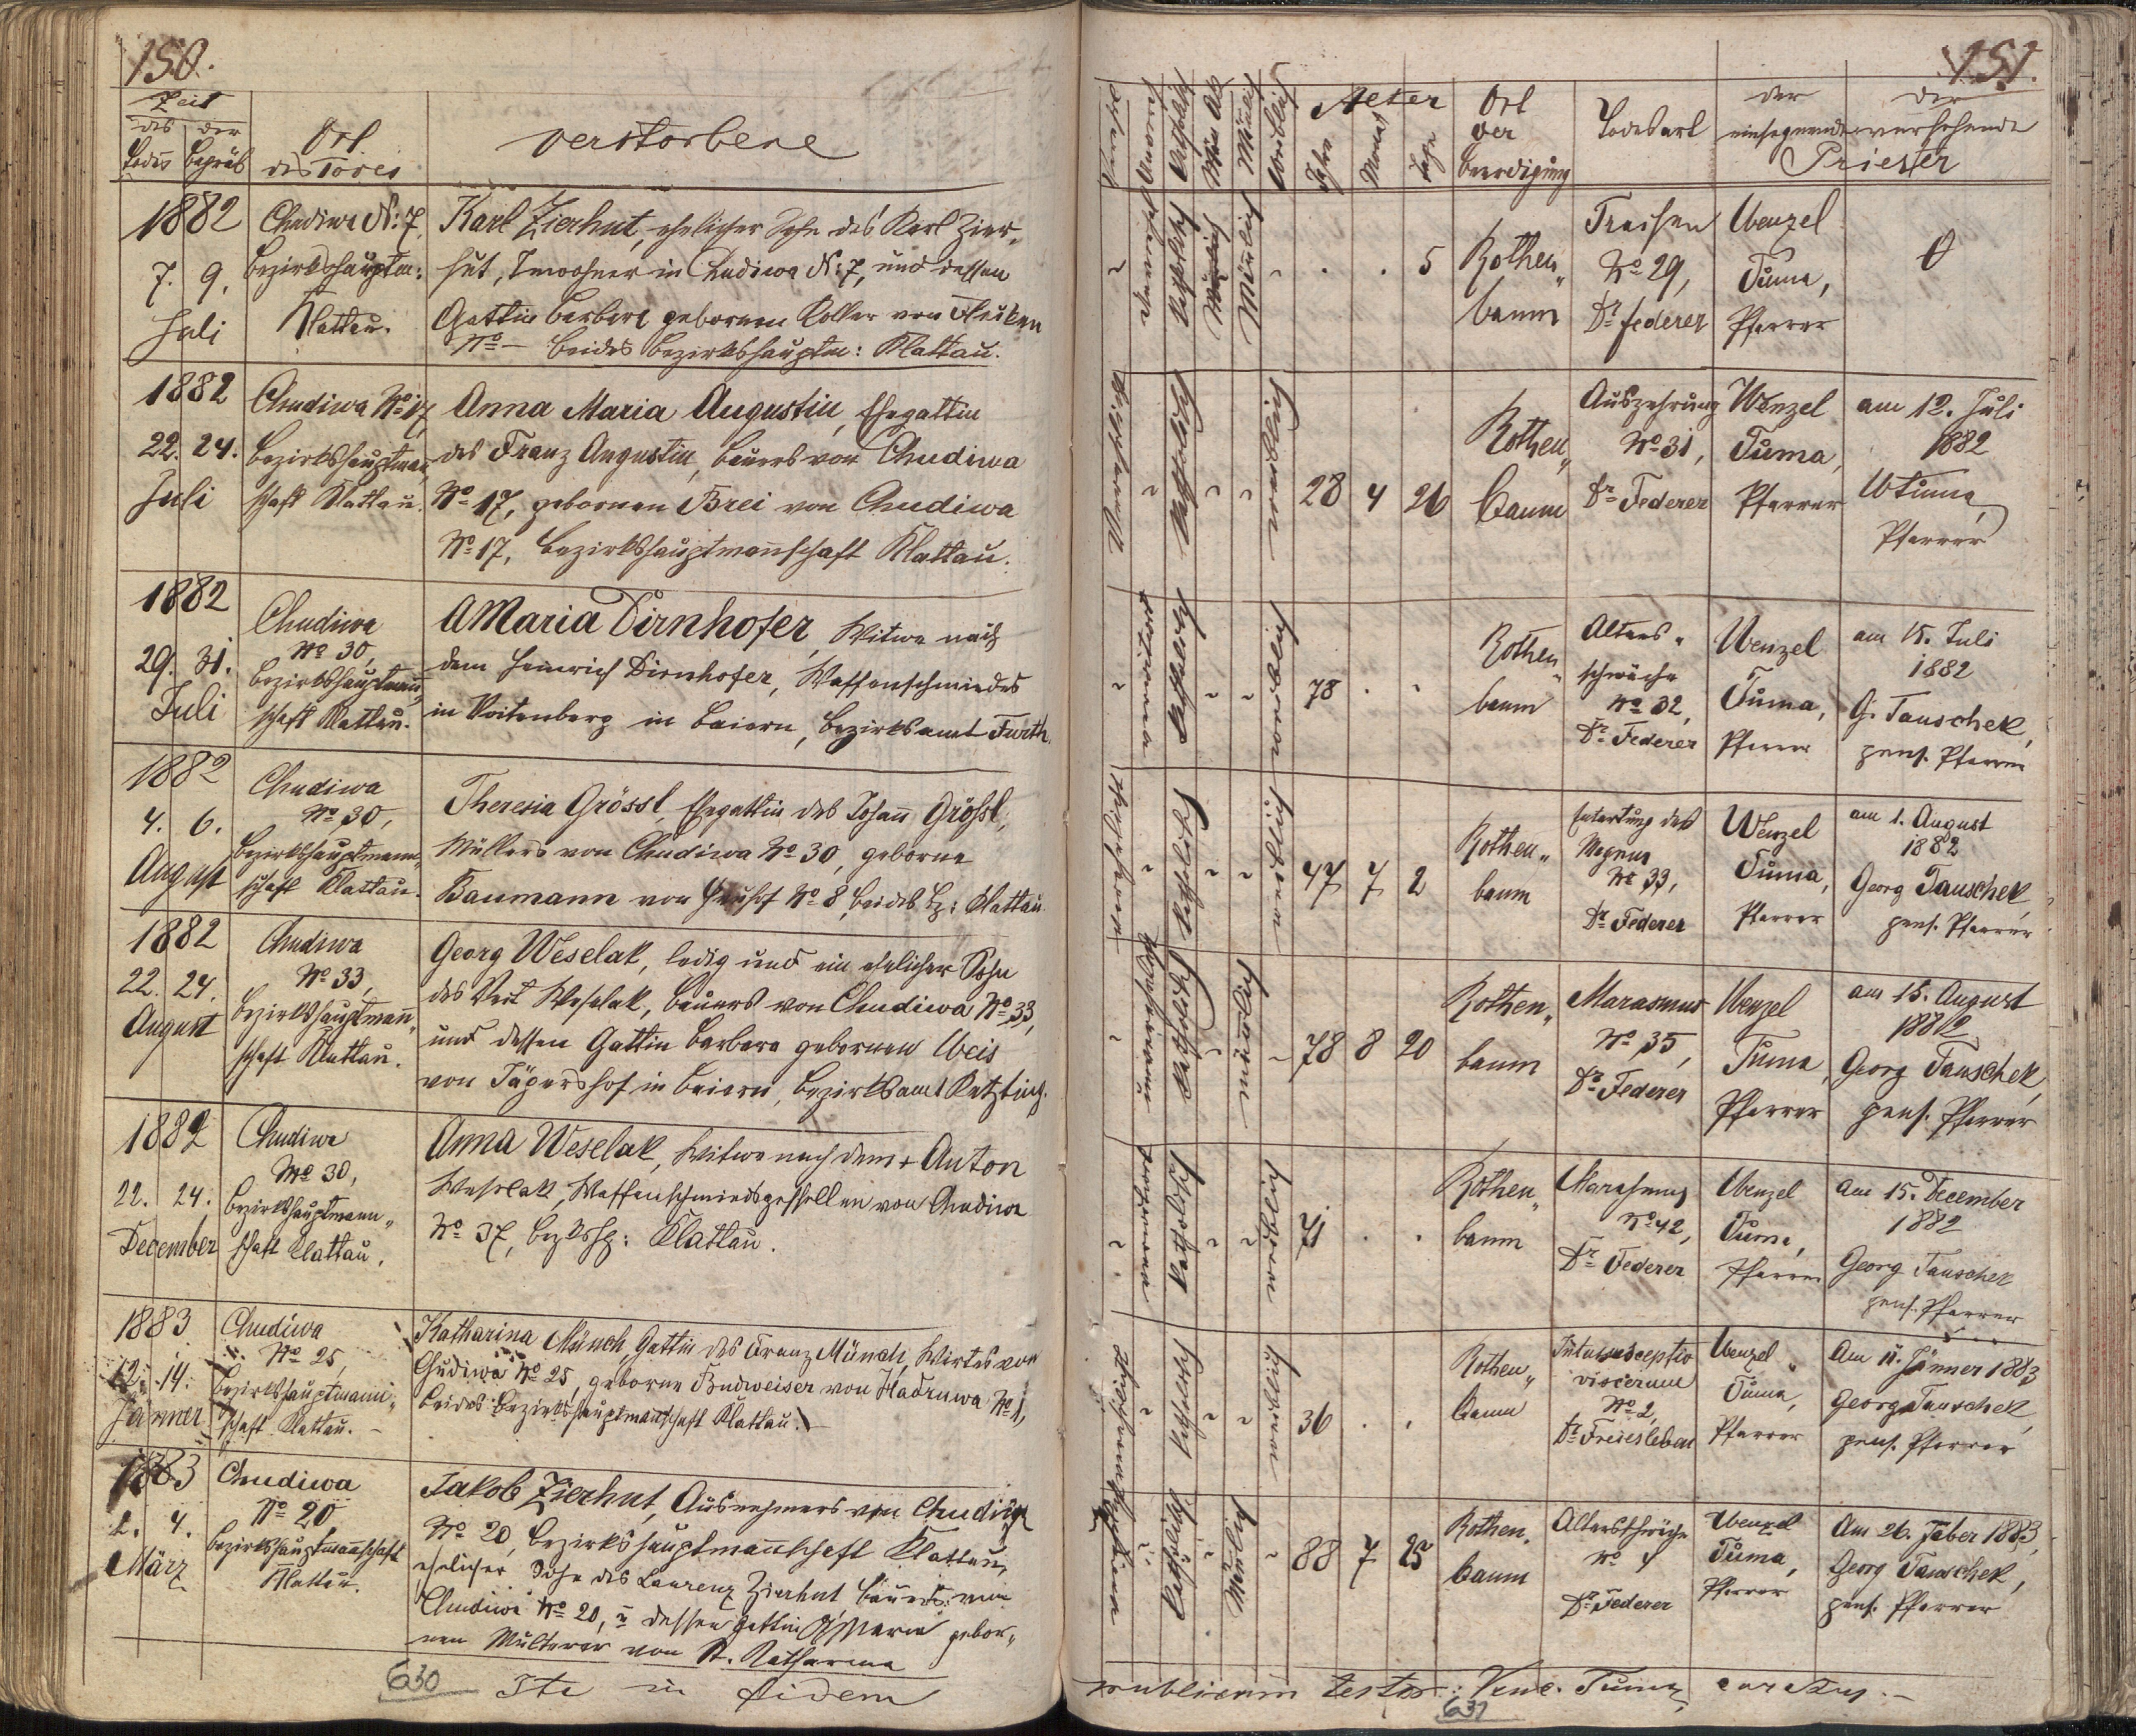 150.
Zeit
des Todes
der Begräb
Ort
des Todes
Verstorbene
1882
7. 9.
Juli
Chudiwa N: 7,
Bezirkshauptm:
Klattau.
Karl Zierhut, ehelicher Sohn des Karl Zier-
hut, Inwohner in Chudiwa N: 7, und dessen
Gattin Barbara gebornen Koller von
No – beides Bezirkshauptm: Klattau.
1882
22. 24.
Juli
Chudiwa No 17,
Bezirkshauptmann
schaft Klattau.
Anna Maria Augustin, Ehegattin
des Franz Augustin, Bauers von Chudiwa
No 17, gebornen Brei von Chudiwa
No 17, Bezirkshauptmannschaft Klattau.
1882
29. 31.
Juli
Chudiwa
No 30,
Bezirkshauptmann,
schaft Klattau.
AMaria Dirnhofer, Witwe nach
dem Heinrich Dirnhofer, Waffenschmiedes
in Voitenberg in Baiern, Bezirksamt Furth.
1882
4. 6.
August
Chudiwa
No 30,
Bezirkshauptmann„
schaft Klattau.
Theresia Grössl, Ehegattin des Johann Grössl,
Müllers von Chudiwa No 30, geborne
Baumann von No 8, beides Bz: Klattau.
1882
22. 24.
August
Chudiwa
No 33,
Bezirkshauptmann„
schaft Klattau.
Georg Weselak, ledig und ein ehelicher Sohn
des Veit Weselak, Bauers von Chudiwa No 33,
und dessen Gattin Barbara gebornen Weis
von Jägershof in Baiern, Bezirksamt Kötzting.
1882
22. 24.
December
Chudiwa
No 30,
Bezirkshauptmann„
schaft Klattau.
Anna Weselak, Witwe nach dem + Anton
Weselak, Waffenschmiedsgesellen von Chudiwa
No 37, Klattau.
1883
12. 14.
Jänner
Chudiwa
No 25,
Bezirkshauptmann„
schaft Klattau. –
Katharina Münch, Gattin des Franz Münch, Wirtes von
Chudiwa No 25, geborne Budweiser von Hadruwa No 1,
beides Bezirkshauptmannschaft Klattau. –
1883
2. 4.
März
Chudiwa
No 20
Bezirkshauptmannschaft
Klattau.
Jakob Zierhut, Ausnehmers von Chudiwa
No 20, Bezirkshauptmannschaft Klattau,
ehelicher Sohn des Laurenz Zierhut Bauers von
Chudiwa No 20, u dessen Gattin AMaria gebor„
nen Multerer von St. Katharina
630
Ita in fidem
151.
Katholisch
Männlich
Weiblich
Alter
Jahre
Monat
Tage
Ort
der
Beerdigung
Todesart
der
einsegnende
der
versehende
Priester
Katholisch
Männlich
5
Rothen„
baum
Fraisen
No 29,
Dr Federer
Wenzel
Tuma,
Pfarrer
0
Verheiratet
Katholisch
weiblich
28 4 26
Rothen„
baum
Auszehrung
No 31,
Dr Federer
Wenzel
Tuma,
Pfarrer
am 12. Juli
1882
WTuma,
Pfarrer
verwitwet
Katholisch
weiblich
78
Rothen„
baum
Alters„
schwäche
No 32,
Dr Federer
Wenzel
Tuma,
Pfarrer
am 15. Juli
1882
G. Tauschek,
pens. Pfarrer
Katholisch
weiblich
47 7 2
Rothen„
baum
Entartung des
Magens
No 33,
Dr Federer
Wenzel
Tuma,
Pfarrer
am 1. August
1882
Georg Tauschek,
pens. Pfarrer
Katholisch
männlich
78 8 20
Rothen„
baum
Marasmus
No 35,
Dr Federer
Wenzel
Tuma,
Pfarrer
am 15. August
1882
Georg Tauschek,
pens. Pfarrer
verwitwet
Katholisch
weiblich
71
Rothen„
baum
Marasmus
No 42,
Dr Federer
Wenzel
Tuma,
Pfarrer
Am 15. December
1882
Georg Tauschek
pens. Pfarrer
Katholisch
weiblich
36
Rothen„
baum
Intussusceptio
viscerum
No 2,
Dr Freiesleben
Wenzel
Tuma,
Pfarrer
Am 11. Jänner 1883,
Georg Tauschek,
pens. Pfarrer
Katholisch
Männlich
88 7 25
Rothen„
baum
Altersschwäche
No 4
Dr Federer
Wenzel
Tuma,
Pfarrer
Am 26. Feber 1883,
Georg Tauschek,
pens. Pfarrer
publicam testor: Venc. Tuma, curatus. –
631